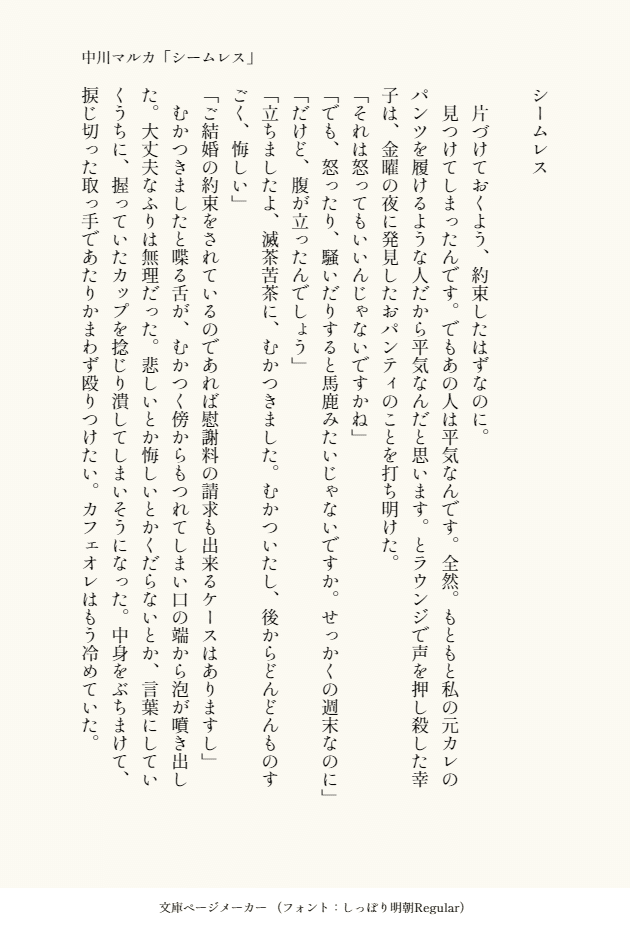 中川マルカ「シームレス」
シームレス
片づけておくよう、約束したはずなのに。
見つけてしまったんです。でもあの人は平気なんです。全然。もともと私の元カレの
パンツを履けるような人だから平気なんだと思います。とラウンジで声を押し殺した幸
子は、金曜の夜に発見したおパンティのことを打ち明けた。
「それは怒ってもいいんじゃないですかね」
「でも、怒ったり、騒いだりすると馬鹿みたいじゃないですか。せっかくの週末なのに」
「だけど、腹が立ったんでしょう」
「立ちましたよ、滅茶苦茶に、むかつきました。むかついたし、後からどんどんものす
ごく、悔しい」
「ご結婚の約束をされているのであれば慰謝料の請求も出来るケースはありますし」
むかつきましたと喋る舌が、むかつく傍からもつれてしまい口の端から泡が噴き出し
た。大丈夫なふりは無理だった。悲しいとか悔しいとかくだらないとか、言葉にしてい
くうちに、握っていたカップを捻じり潰してしまいそうになった。中身をぶちまけて、
捩じ切った取っ手であたりかまわず殴りつけたい。カフェオレはもう冷めていた。
文庫ページメーカー （フォント：しっぽり明朝Regular）